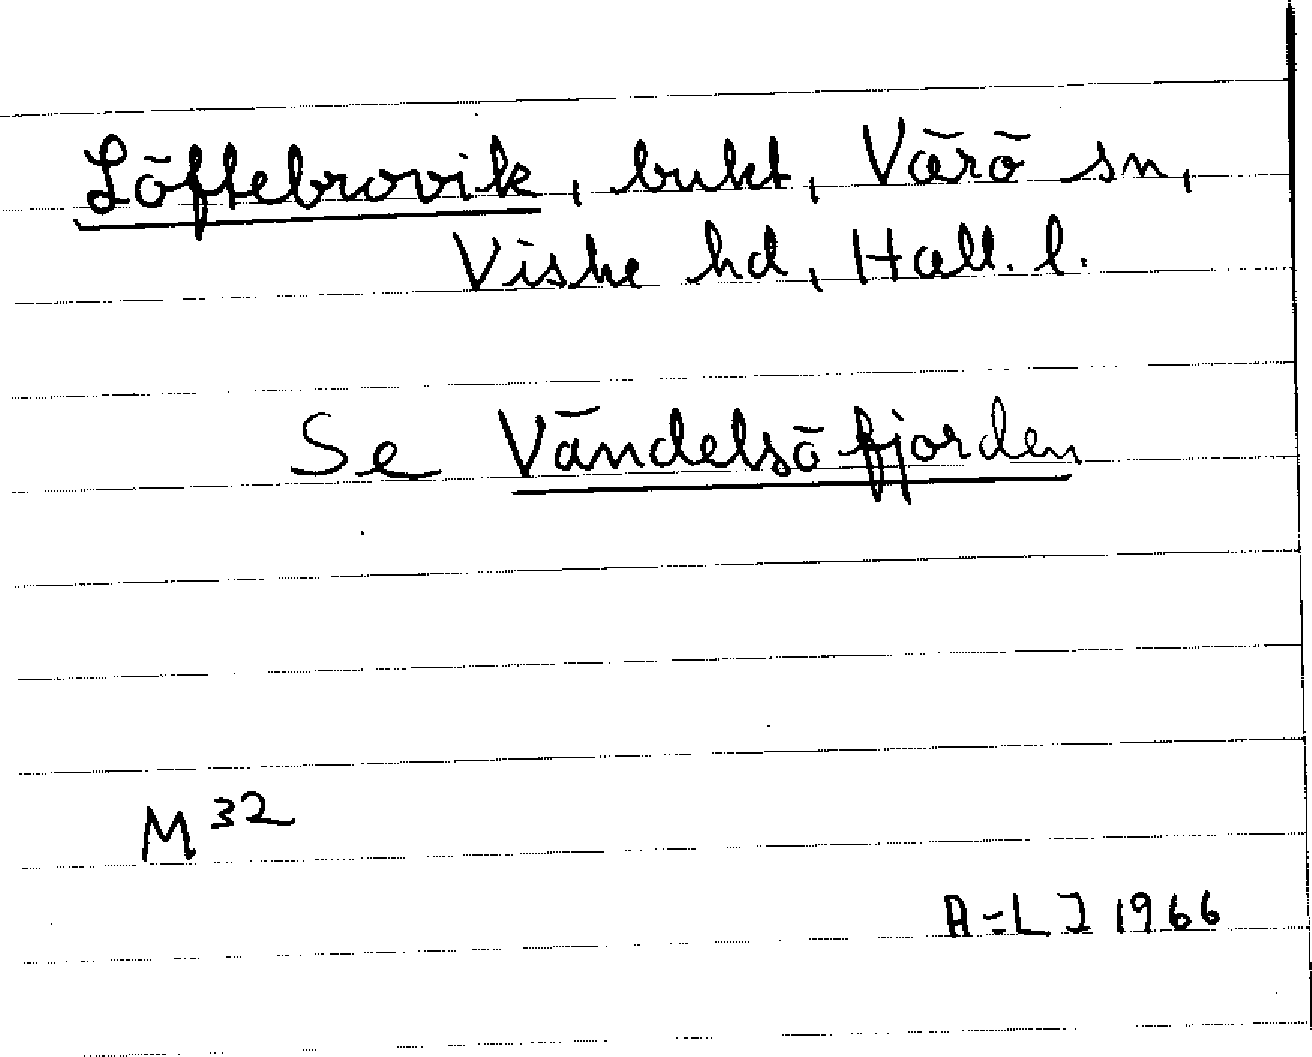 Löftebrovik, bukt, Värö sn,
Viske hd, Hall. l.
Se Vändelsöfjorden
M 32
A-L J 1966